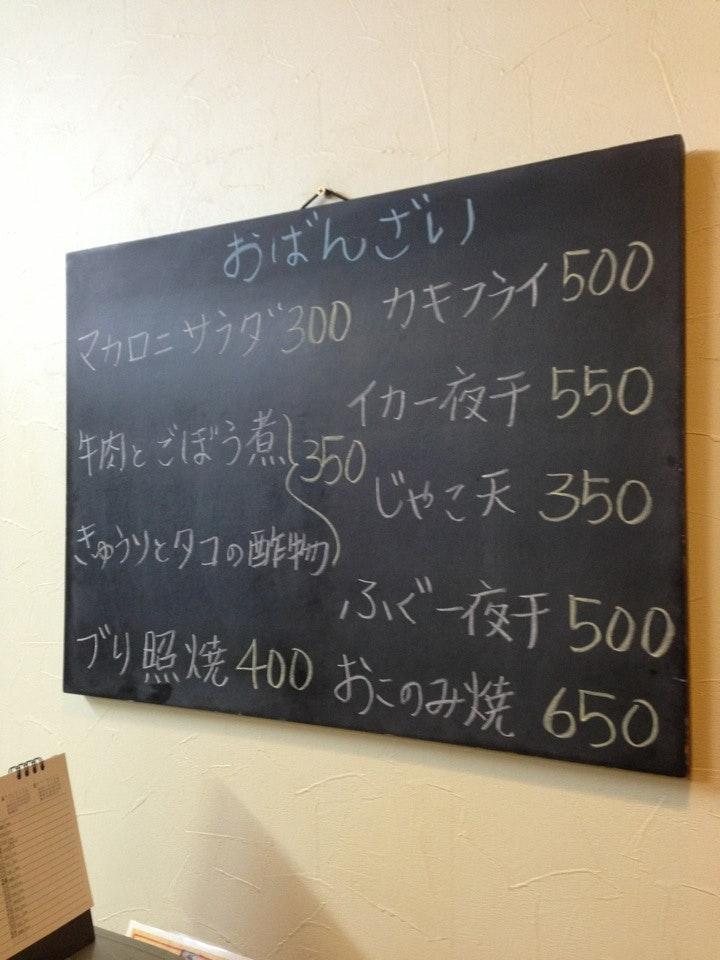 おばんざい
マカロニサラダ 300
牛肉とごぼう煮
きゅうりとタコの酢物
350
ブリ照焼 400
カキフライ 500
イカ一夜干 550
じゃこ天 350
ふぐ一夜干 500
おこのみ焼 650